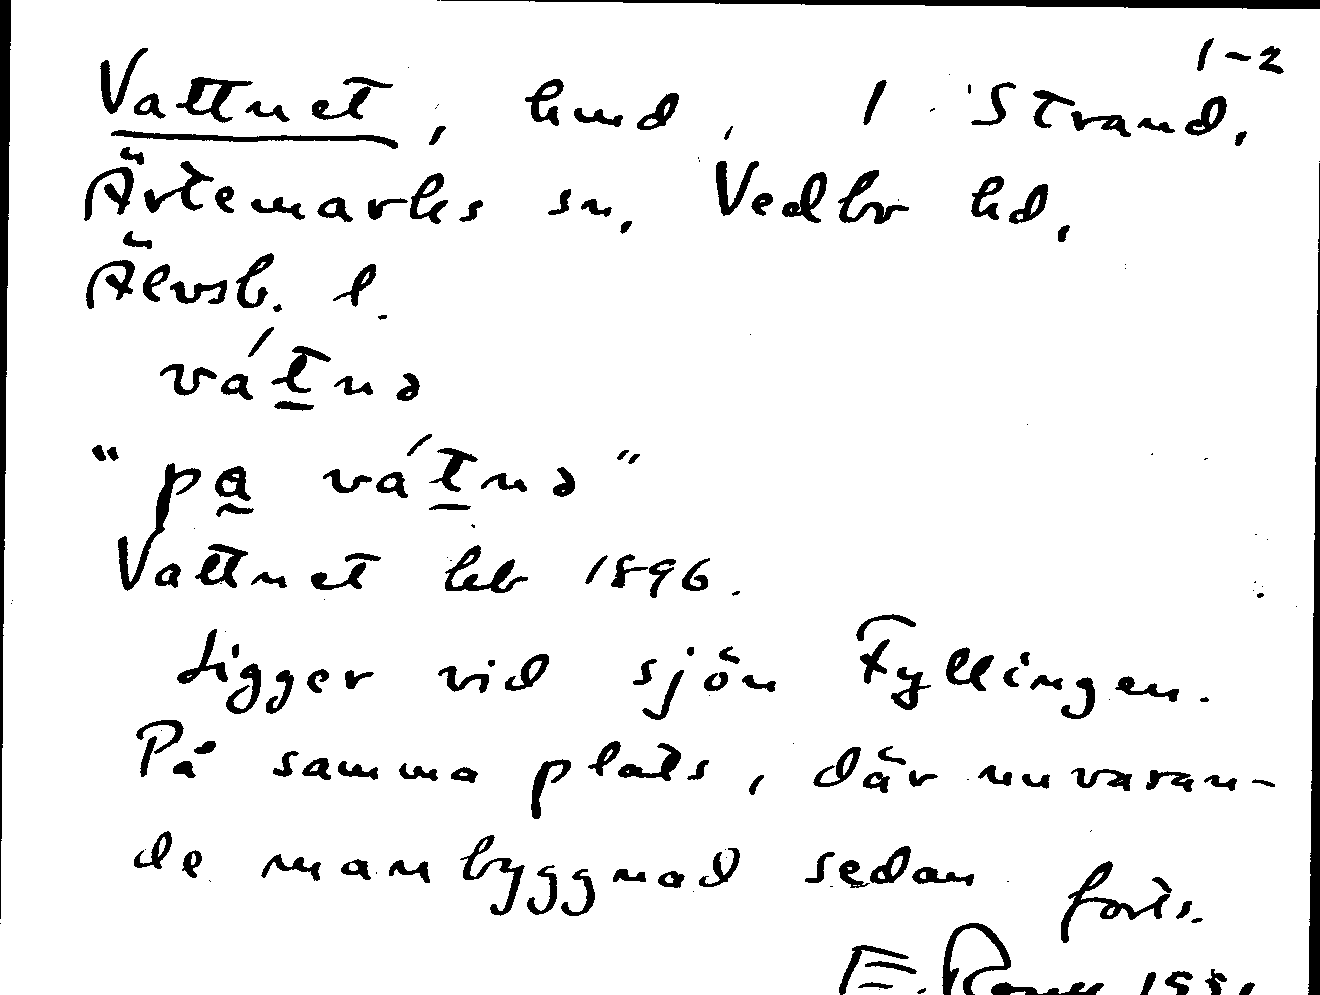 1-2
Vattnet, hmd, 1 Strand,
Ärtemarks sn, Vedbo hd,
Älvsb. l.
vát̲nə
"pa̰ vát̲nə"
Vattnet hmb 1896.
Ligger vid sjön Fyllingen.
På samma plats, där nuvaran-
de manbyggnad sedan forts.
E.